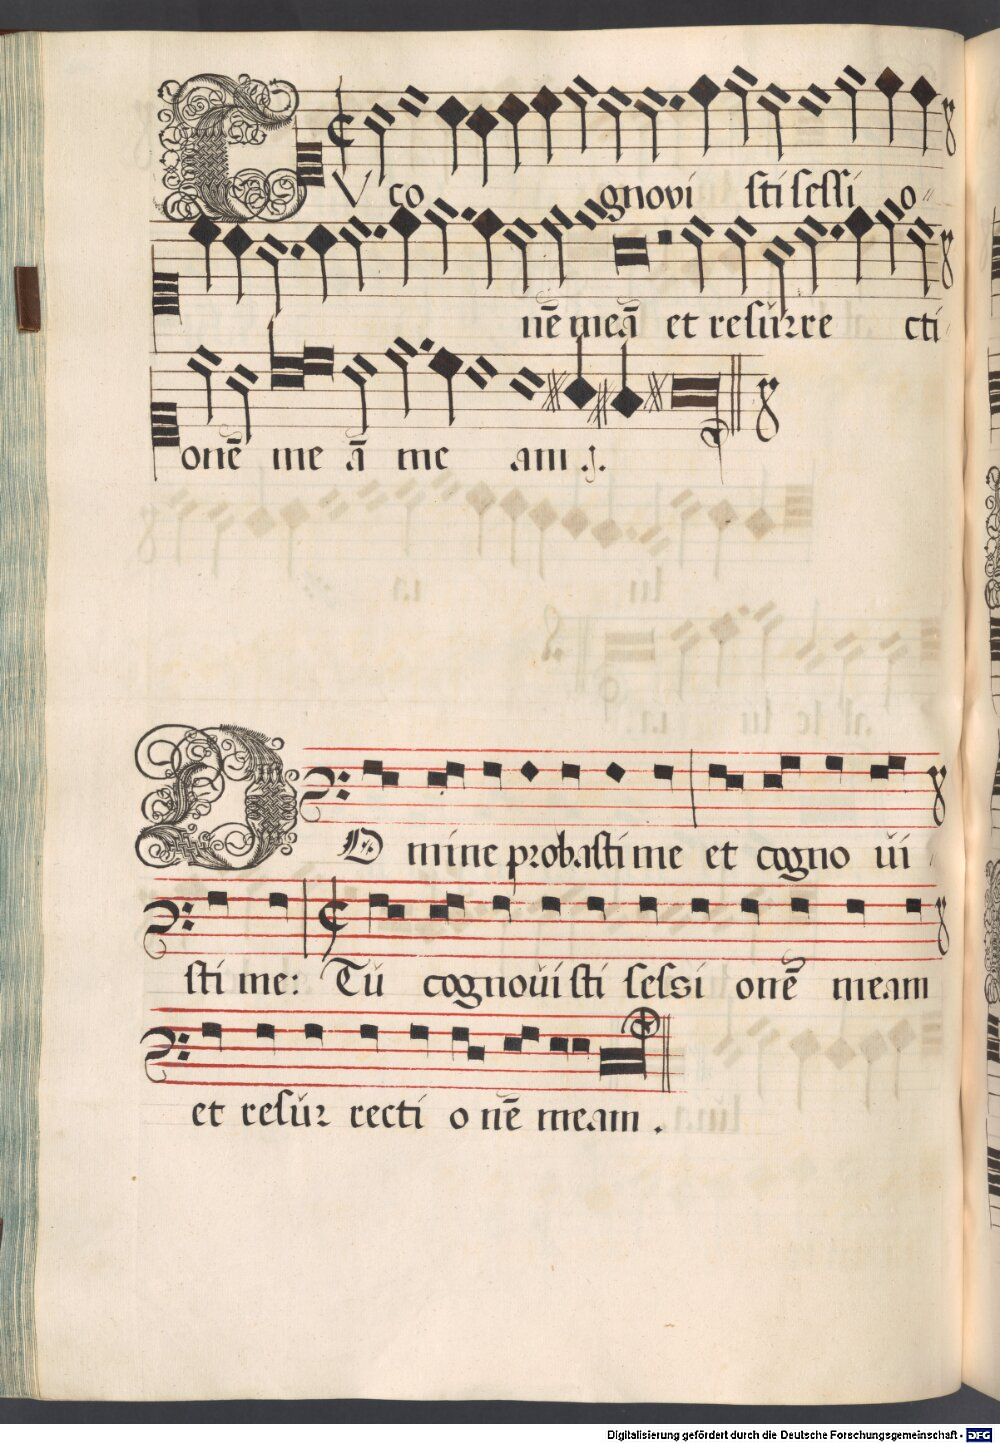 TV co gnovi sti sessi o-
nē meā et resurre cti
onē me ā me am.
DO mine probasti me et cogno ui
sti me: Tu cognouisti sessi onē meam
et resur recti o nē meam.
Digitalisierung gefördert durch die Deutsche Forschungsgemeinschaft - DFG